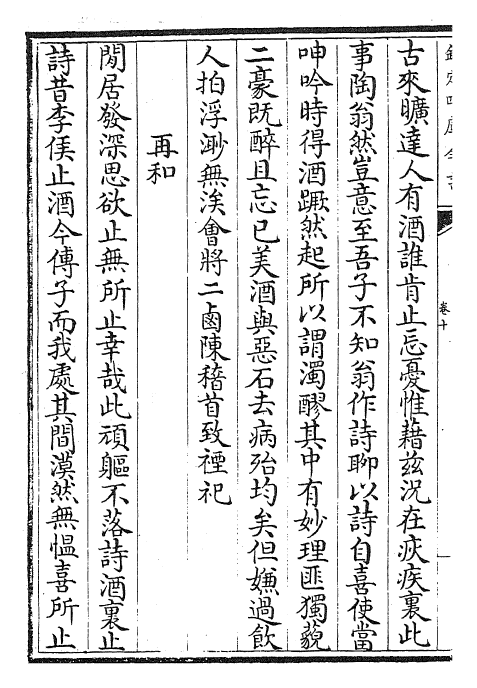 欽定四庫全書
卷十
古來曠達人有酒誰肯止忘憂惟藉兹況在疢疾裏此
事陶翁然豈意至吾子不知翁作詩聊以詩自喜使當
呻吟時得酒蹶然起所以謂濁醪其中有妙理匪獨藐
二豪既醉且忘己美酒與惡石去病殆均矣但嫌過飲
人拍浮渺無涘會將二鹵陳稽首致禋祀
再和
閒居發深思欲止無所止幸哉此頑軀不落詩酒裏止
詩昔李侯止酒今傅子而我處其間漠然無愠喜所止